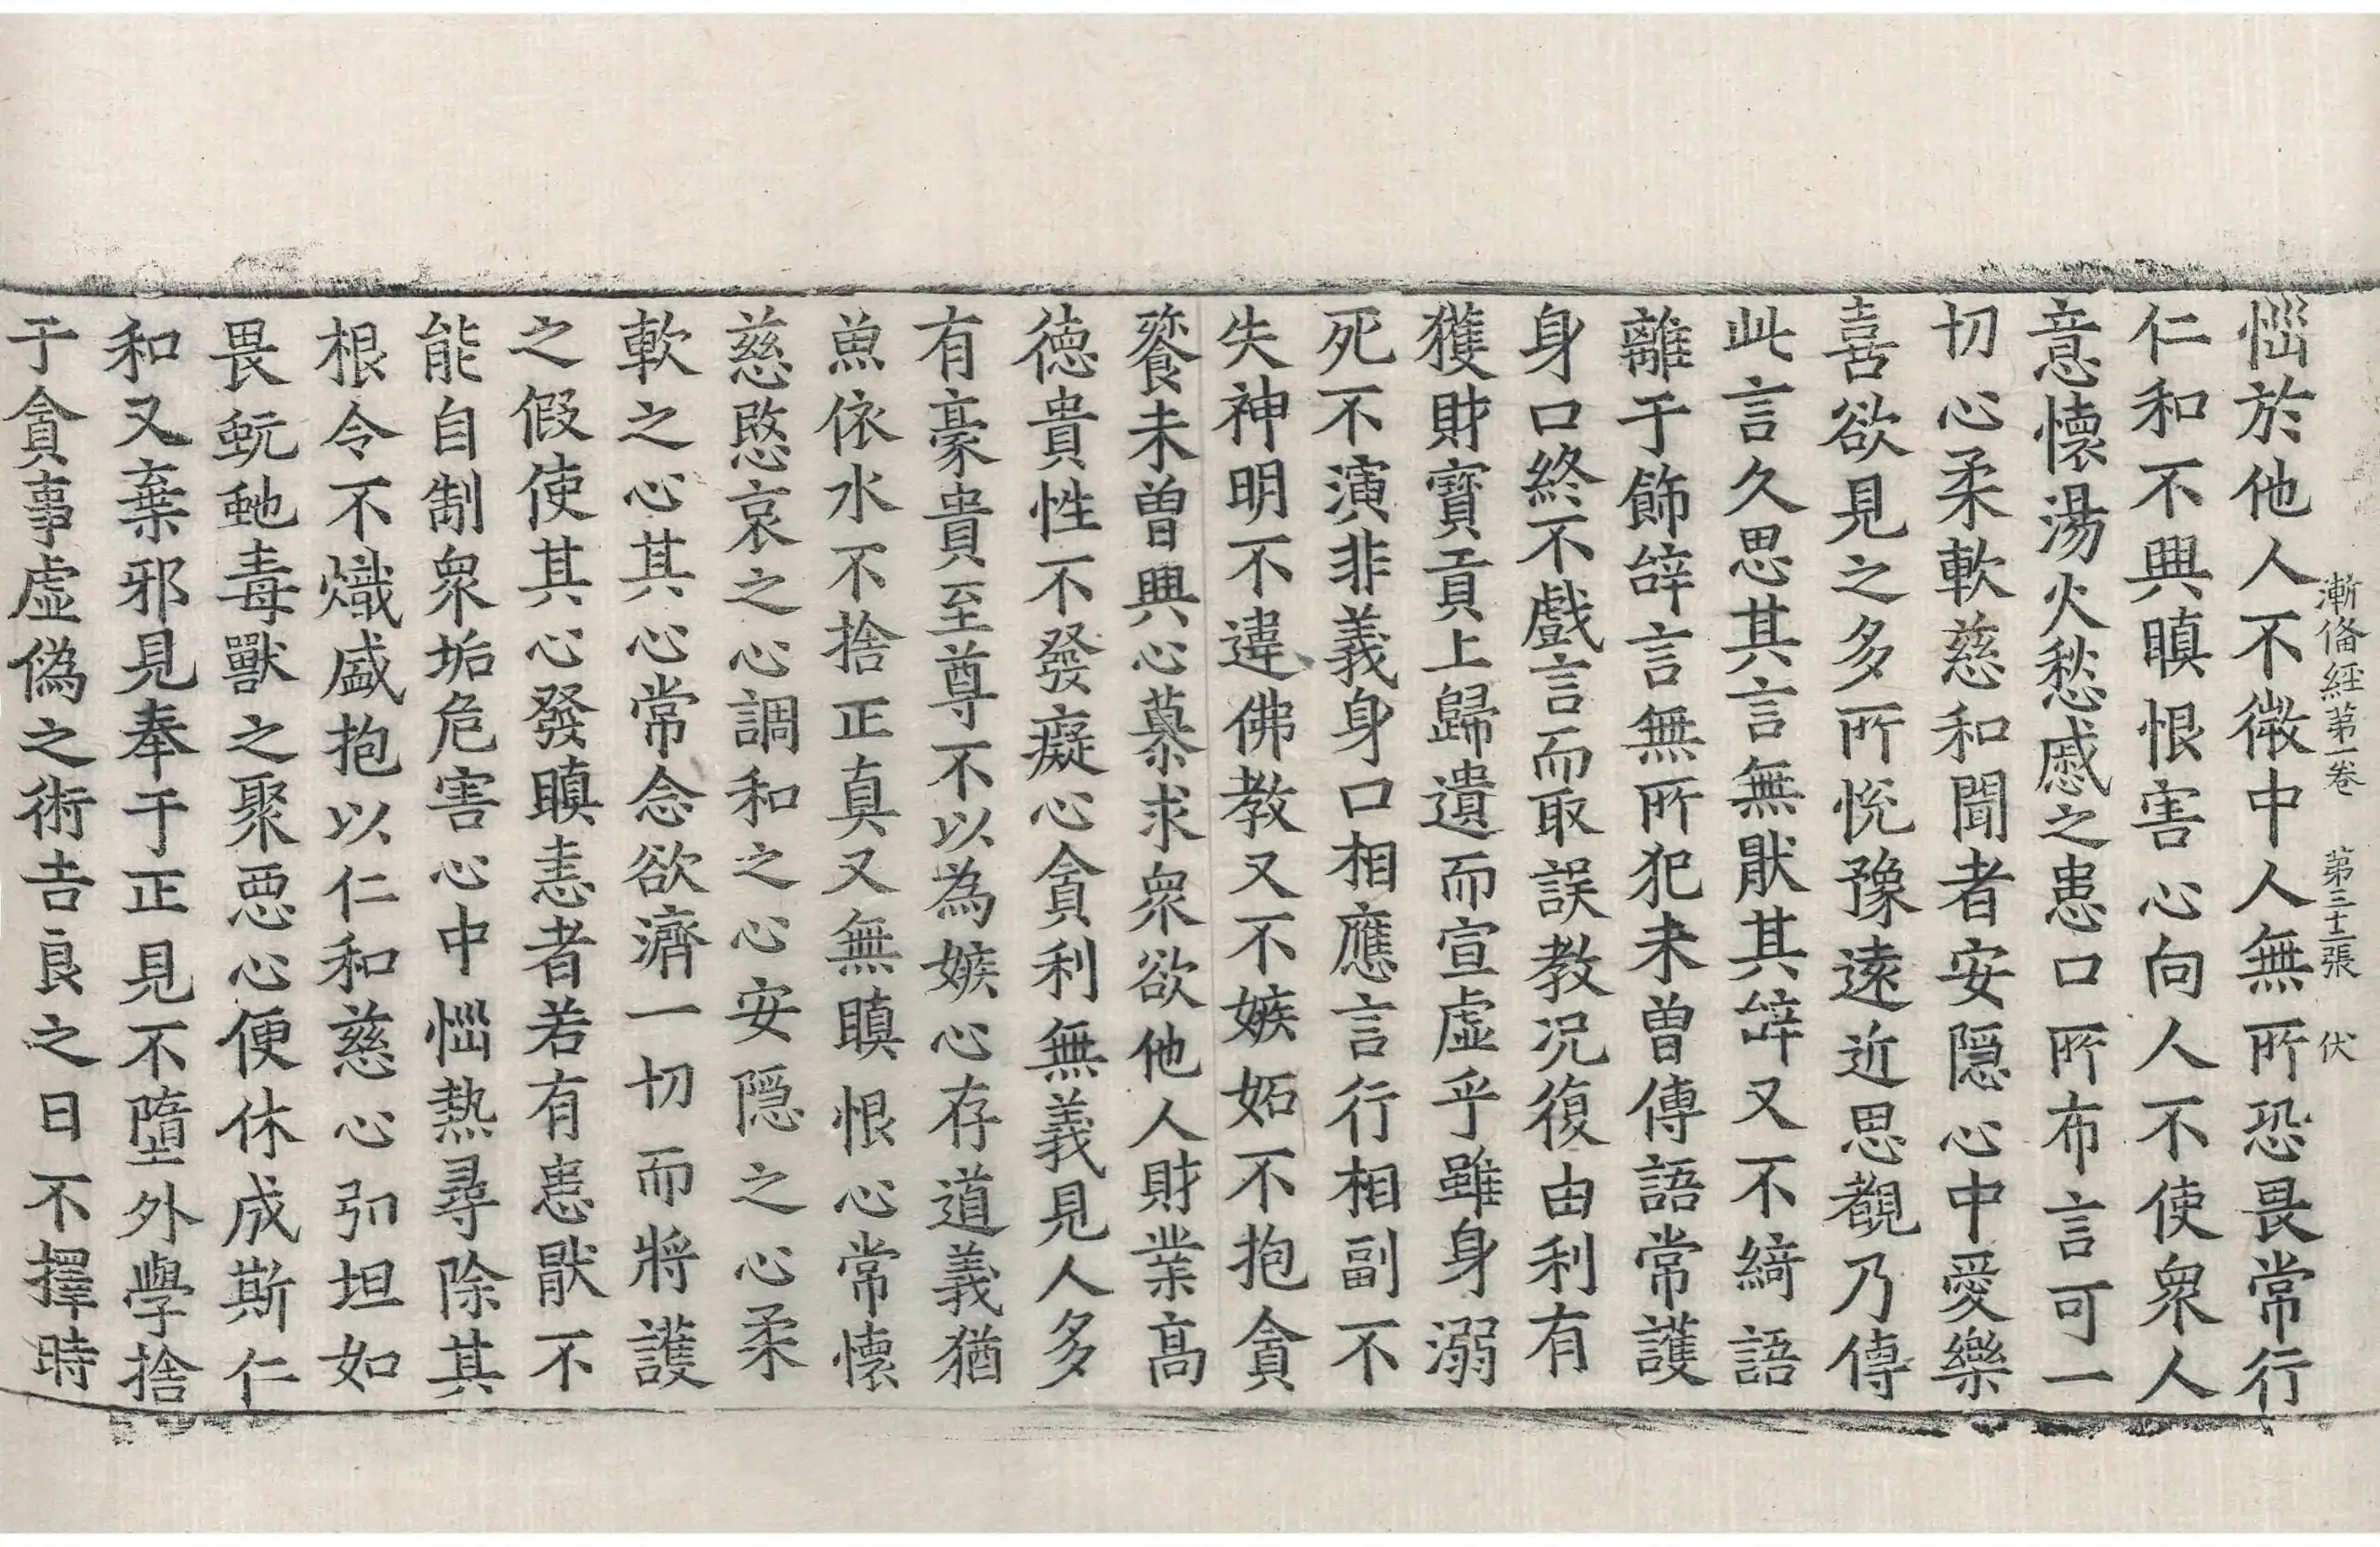 漸俻經第一卷 第三十二張 伏
惱於他人不徵中人無所恐畏常行
仁和不興瞋恨害心向人不使衆人
意懷湯火愁慼之患口所布言可一
切心柔軟慈和聞者安隱心中愛樂
喜欲見之多所悅豫遠近思覩乃傳
此言久思其言無猒其辝又不綺語
離于飾辝言無所犯未曽傳語常護
身口終不戲言而取誤教况復由利有
獲財寳貢上歸遺而宣虛乎雖身溺
死不演非義身口相應言行相副不
失神明不違佛教又不嫉妬不抱貪
餮未曽興心慕求衆欲他人財業髙
徳貴性不發癡心貪利無義見人多
有豪貴至尊不以為嫉心存道義猶
魚依水不捨正真又無瞋恨心常懷
慈愍哀之心調和之心安隠之心柔
軟之心其心常念欲濟一切而將護
之假使其心發瞋恚者若有患猒不
能自制衆垢危害心中惱熱尋除其
根令不熾盛抱以仁和慈心弘坦如
畏蚖虵毒獸之聚惡心便休成斯仁
和又棄邪見奉于正見不墮外學捨
于貪事虛偽之術吉良之日不擇時